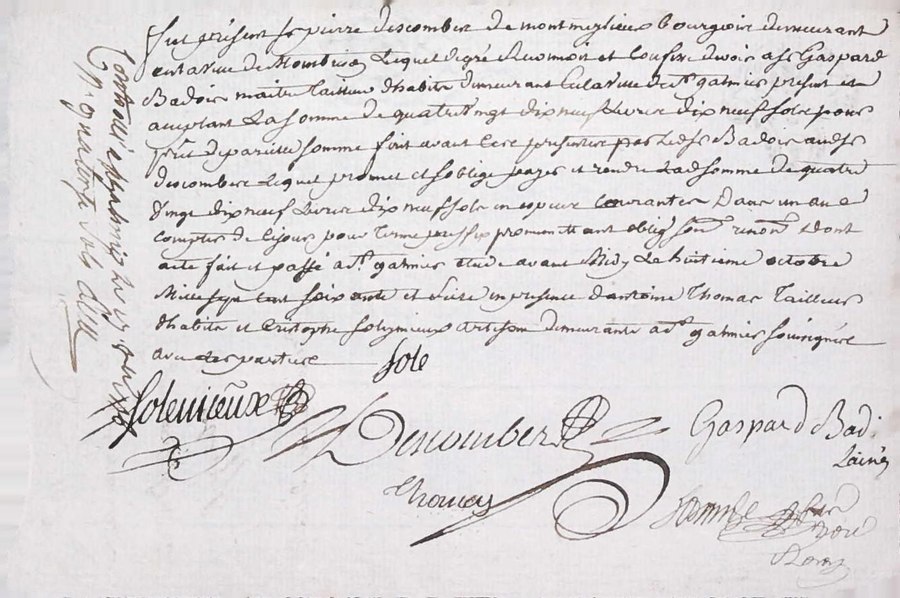 fut présent sr pierre descomber de montmersieu bourgois demeurant
en la ville de Lequel de gré Reconnoit et Confesse devoir a sr Gaspard
Badois maitre tailleur dhabits demeurant En la ville de st galmier present et
acceptant La somme de quatre vingt dix neuf Livres dix neuf sols pour
prêt de pareille somme fait avant Ces presentes par Ledt sr Badois audt sr
descomber Lequel promet et soblige payer et rendre Ladt somme de quatre
vingt dix neuf Livres dix neuf sols en especes Courantes Dans un an a
compter de Ce jour pour terme prefix promettant oblig renon dont
acte fait et passé a st galmier Etude avant Midy Le huitieme octobre
Mille sept Cent soixante et seize en presence dantoine Thomas Tailleur
dhabits et Cristophe Solymieux artisan demeurants a st galmier soussignés
avec Les parties sols
Solemieux
Descomber
Gaspard Badois
Lainé
Thomas
Controllé a st galmier Le
R quatorze sols